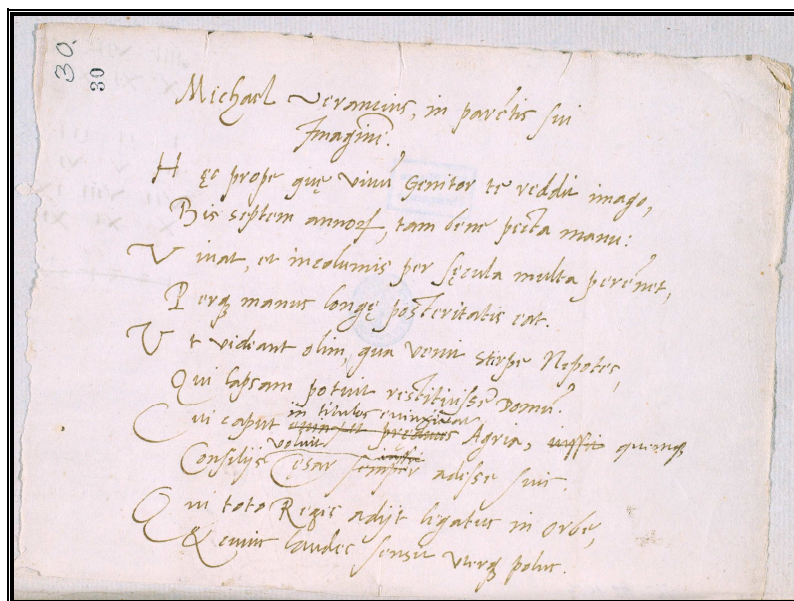 30.
30
Michael Verantius, in parẽtis sui
Imaginẽ.
Hęc prope quę viuũ Genitor te reddit imago,
Bis septem annorũ, tam bene picta manu:
Viuat, et incolumis per sęcula multa perẽnet,
Perq; manus longę posteritatis eat.
Vt videant olim, qua venit stirpe Nepotes,
Qui lapsam potuit restituisse Domũ.
in titulos
Cui caput Agria, iussit quemq;
voluit iussit
Consilijs Cęsar semper adesse suis.
Qui toto Regis adijt legatus in orbe,
& cuius laudes sensit vterq; polus.